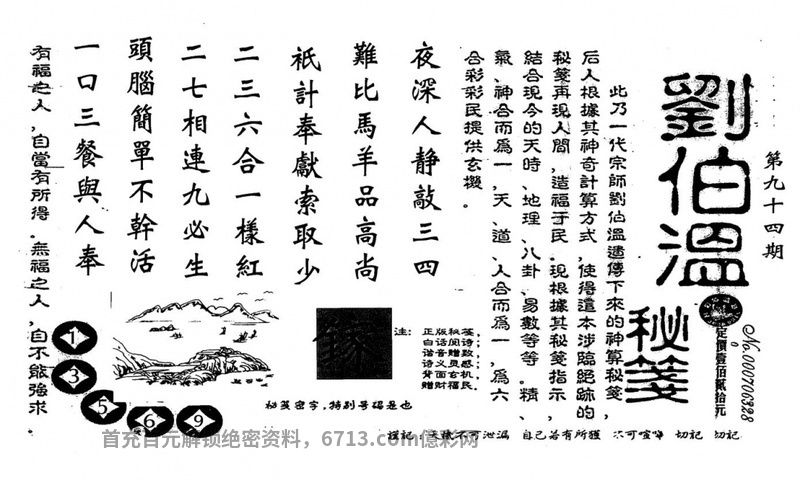 第九十四期
劉伯溫
秘箋
定價壹佰貳拾元
No.000700328
此乃一代宗師劉伯溫遺傳下來的神算秘箋，
后人根據其神奇計算方式，使得這本涉臨絕跡的
秘箋再現人間，造福于民。現根據其秘箋指示，
結合現今的天時、地理、八卦、易數等等。精、
氣、神合而爲一，天、道、人合而爲一，爲六
合彩彩民提供玄機。
夜深人静敲三四
難比馬羊品高尚
祇計奉獻索取少
二三六合一樣紅
二七相連九必生
頭腦簡單不幹活
一口三餐與人奉
有福之人，自當有所得。無福之人，自不能強求。
注：
正版秘箋：
白话闻诗：
谐音赠数，
诗义灵感，
背面玄机，
赠财福民。
秘箋密字，特别号碼是也
1
3
5
6
9
謹記：天機不可泄漏 自己若有所獲 不可喧嘩 切記 切記
首充百元解锁绝密资料，6713.com億彩网